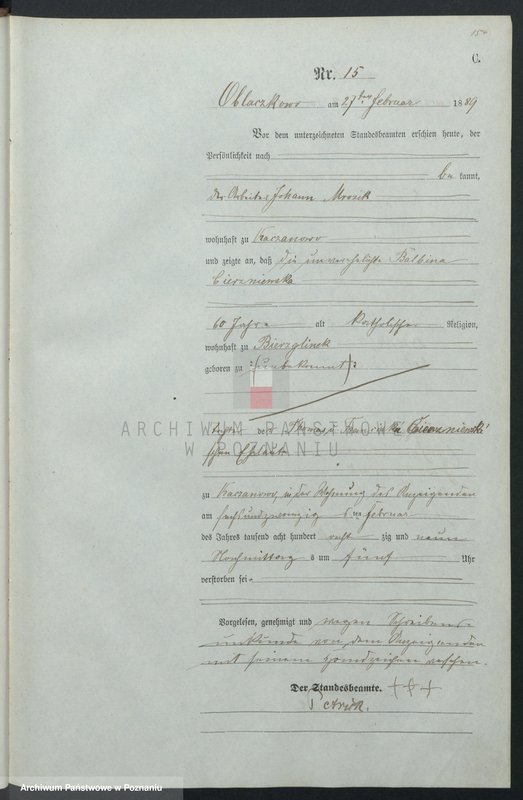 15
C.
Nr. 15
Oblaczkowo am 27ten Februar 1889
Vor dem unterzeichneten Standesbeamten erschien heute, der
Persönlichkeit nach
be kannt,
der Arbeiter Johann Mrozik
wohnhaft zu Kaczanowo
und zeigte an, daß die unverehelichte Balbina
Cierzniewska
60 Jahre alt katholischer Religion,
wohnhaft zu Bierzglinek
geboren zu (unbekannt)
ARCHIWUM PAŃSTWOWE
W POZNANIU
Tochter der Thomas
schen Eheleute
zu Kaczanowo, in der Wohnung des Anzeigenden
am sechsundzwanzigsten Februar
des Jahres tausend acht hundert acht zig und neun
Nachmittags um fünf Uhr
verstorben sei.
Vorgelesen, genehmigt und wegen Schreibens-
unkunde von dem Anzeigenden
mit seinem Handzeichen versehen.
+++
Der Standesbeamte.
Archiwum Państwowe w Poznaniu